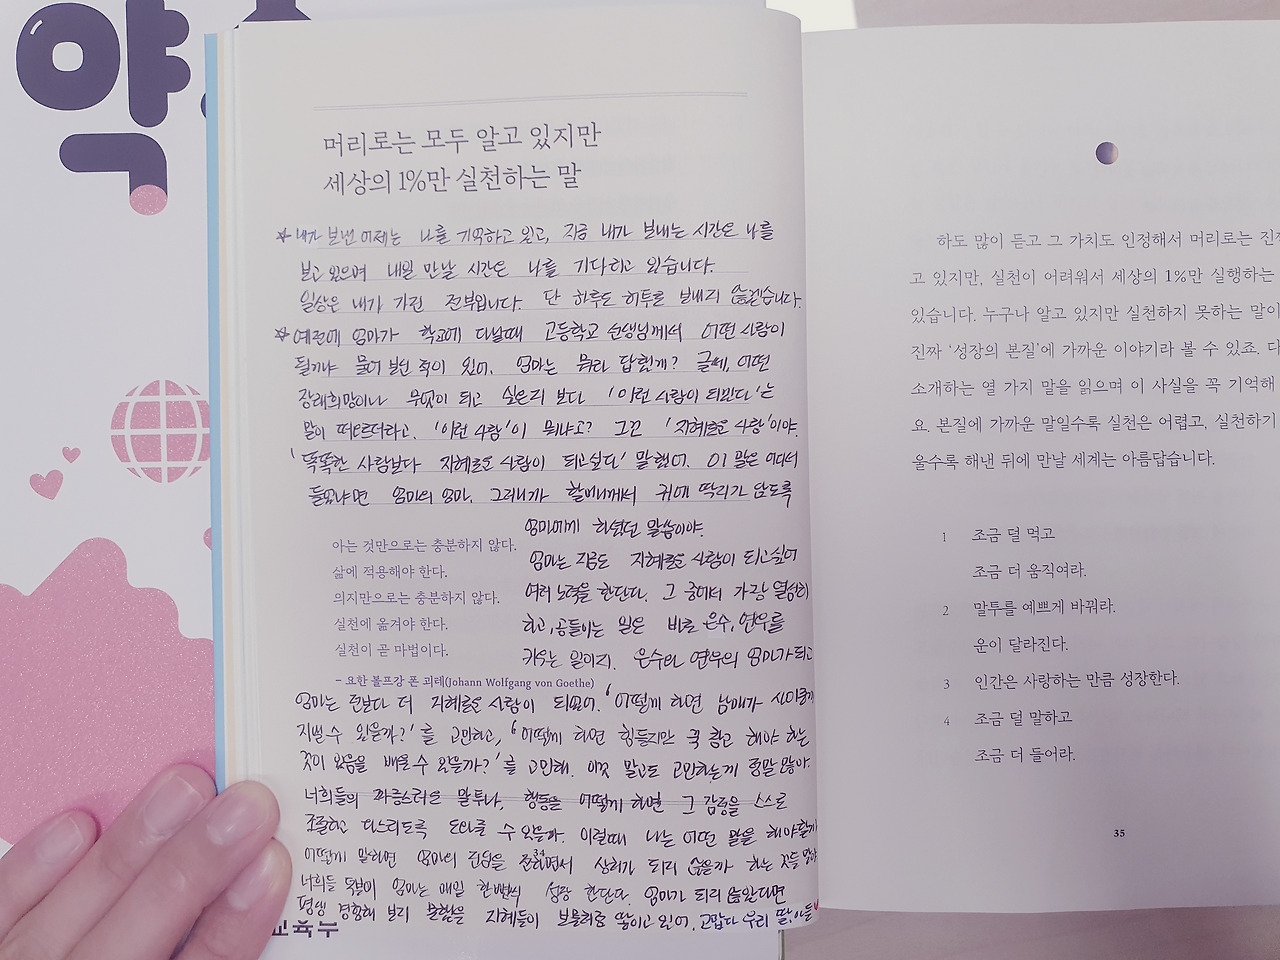 약
머리로는 모두 알고 있지만
세상의 1%만 실천하는 말
☆ 내가 보낸 어제는 나를 기억하고 있고, 지금 내가 보내는 시간은 나를
보고 있으며 내일 만날 시간은 나를 기다리고 있습니다.
일상은 내가 가진 전부입니다. 단 하루도 허투로 보내지 않겠습니다.
☆ 예전에 엄마가 학교에 다닐때 고등학교 선생님께서 어떤 사람이
될거냐 물어 보신 적이 있어. 엄마는 뭐라 답했게? 글쎄, 어떤
장래희망이나 무엇이 되고 싶은지 보다 '이런 사람이 되겠다'는
말이 떠오르더라고. '이런 사람'이 뭐냐고? 그건 '지혜로운 사람'이야.
'똑똑한 사람보다 지혜로운 사람이 되고싶다' 말했어. 이 말은 어디서
들었냐면 엄마의 엄마. 그러니까 할머니께서 귀에 딱지가 앉도록
엄마에게 하셨던 말씀이야.
엄마는 지금도 지혜로운 사람이 되고싶어
여러 노력을 한단다. 그 중에서 가장 열심히
하고, 공들이는 일은 바로 은수, 연우를
키우는 일이지. 은수와 연우의 엄마가 되고
아는 것만으로는 충분하지 않다.
삶에 적용해야 한다.
의지만으로는 충분하지 않다.
실천에 옮겨야 한다.
실천이 곧 마법이다.
– 요한 볼프강 폰 괴테(Johann Wolfgang von Goethe)
엄마는 전보다 더 지혜로운 사람이 되었어. '어떻게 하면 남매가 사이좋게
지낼 수 있을까?'를 고민하고, '어떻게 하면 힘들지만 꾹 참고 해야 하는
것이 있음을 배울 수 있을까?'를 고민해. 이것 말고도 고민하는게 정말 많아.
너희들의 말투나, 행동을 어떻게 하면 그 감정을 스스로
조절하고 다스리도록 도와줄 수 있을까. 이럴때 나는 어떤 말을 해야할까
어떻게 말하면 엄마의 진심을 전하면서 상처가 되지 않을까 하는 것들 말야
너희들 덕분에 엄마는 매일 한뼘씩 성장 한단다. 엄마가 되지 않았다면
평생 경험해 보지 못했을 지혜들이 보물처럼 쌓이고 있어. 고맙다 우리 딸, 아들
교육부
하도 많이 듣고 그 가치도 인정해서 머리로는
고 있지만, 실천이 어려워서 세상의 1%만 실행하는
있습니다. 누구나 알고 있지만 실천하지 못하는 말이
진짜 '성장의 본질'에 가까운 이야기라 볼 수 있죠.
소개하는 열 가지 말을 읽으며 이 사실을 꼭 기억해
요. 본질에 가까운 말일수록 실천은 어렵고, 실천하기
울수록 해낸 뒤에 만날 세계는 아름답습니다.
1 조금 덜 먹고
조금 더 움직여라.
2 말투를 예쁘게 바꿔라.
운이 달라진다.
3 인간은 사랑하는 만큼 성장한다.
4 조금 덜 말하고
조금 더 들어라.
35